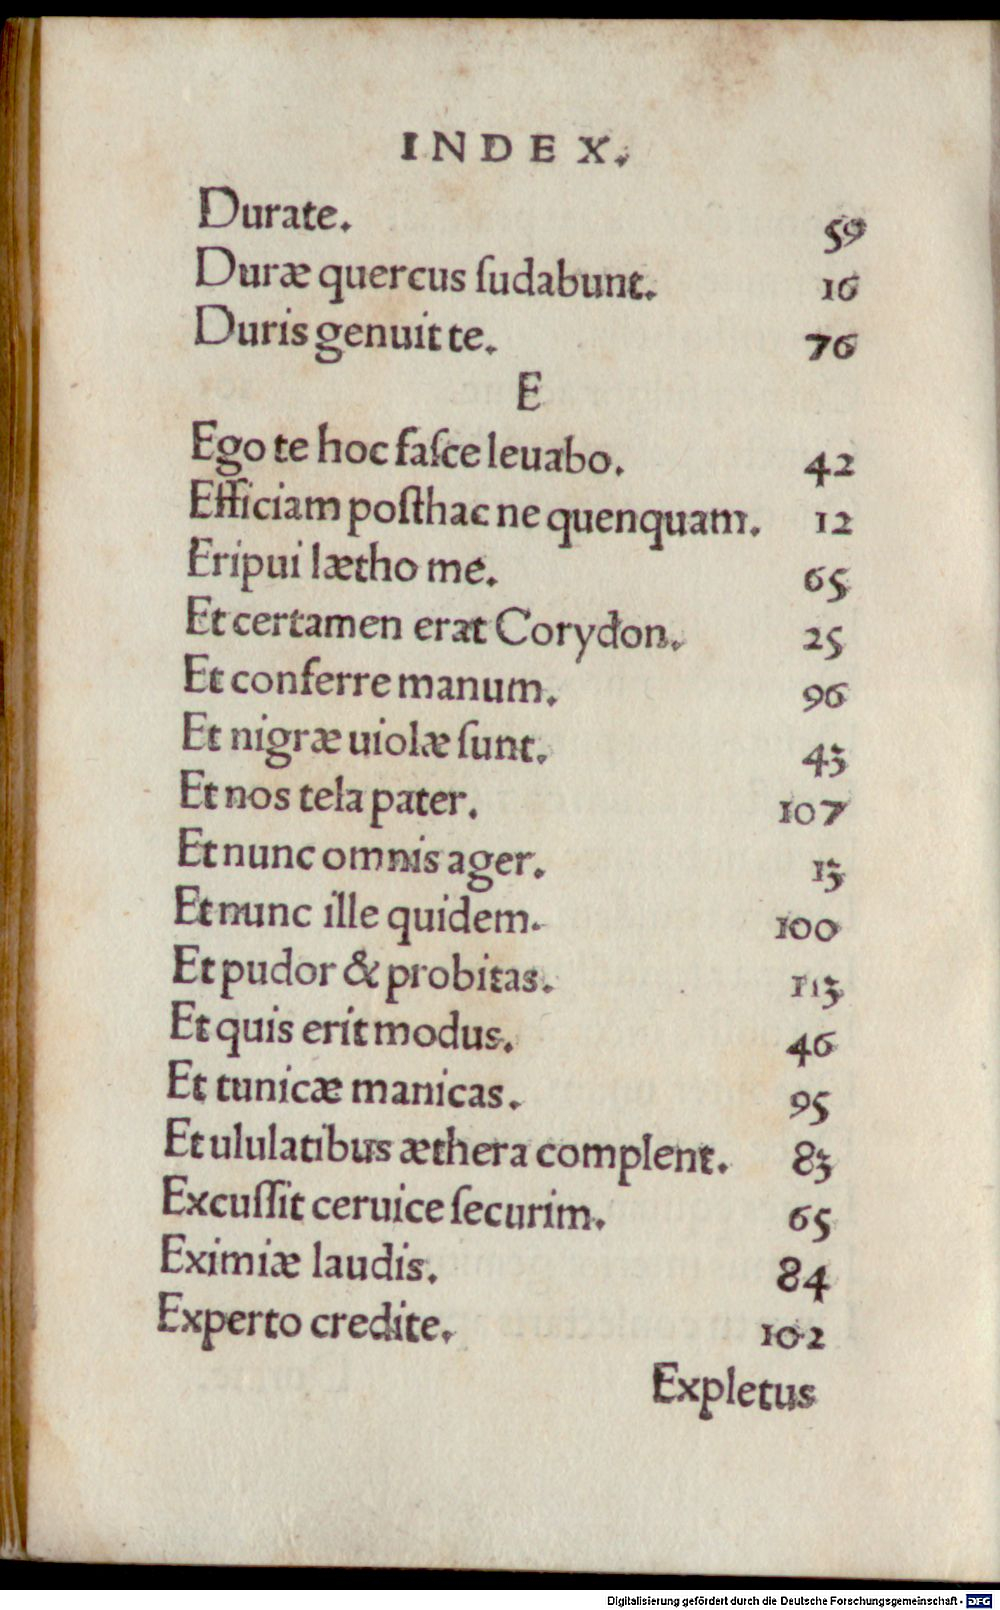 INDEX.
Durate. 59
Duræ quercus ſudabunt. 16
Duris genuit te. 76
E
Ego te hoc faſce leuabo. 42
Efficiam poſthac ne quenquam. 12
Eripui lætho me. 65
Et certamen erat Corydon. 25
Et conferre manum. 96
Et nigræ uiolæ ſunt. 43
Et nos tela pater. 107
Et nunc omnis ager. 13
Et nunc ille quidem. 100
Et pudor & probitas. 113
Et quis erit modus. 46
Et tunicæ manicas. 95
Et ululatibus æthera complent. 83
Excuſſit ceruice ſecurim. 65
Eximiæ laudis. 84
Experto credite. 102
Expletus
Digitalisierung gefördert durch die Deutsche Forschungsgemeinschaft - DFG